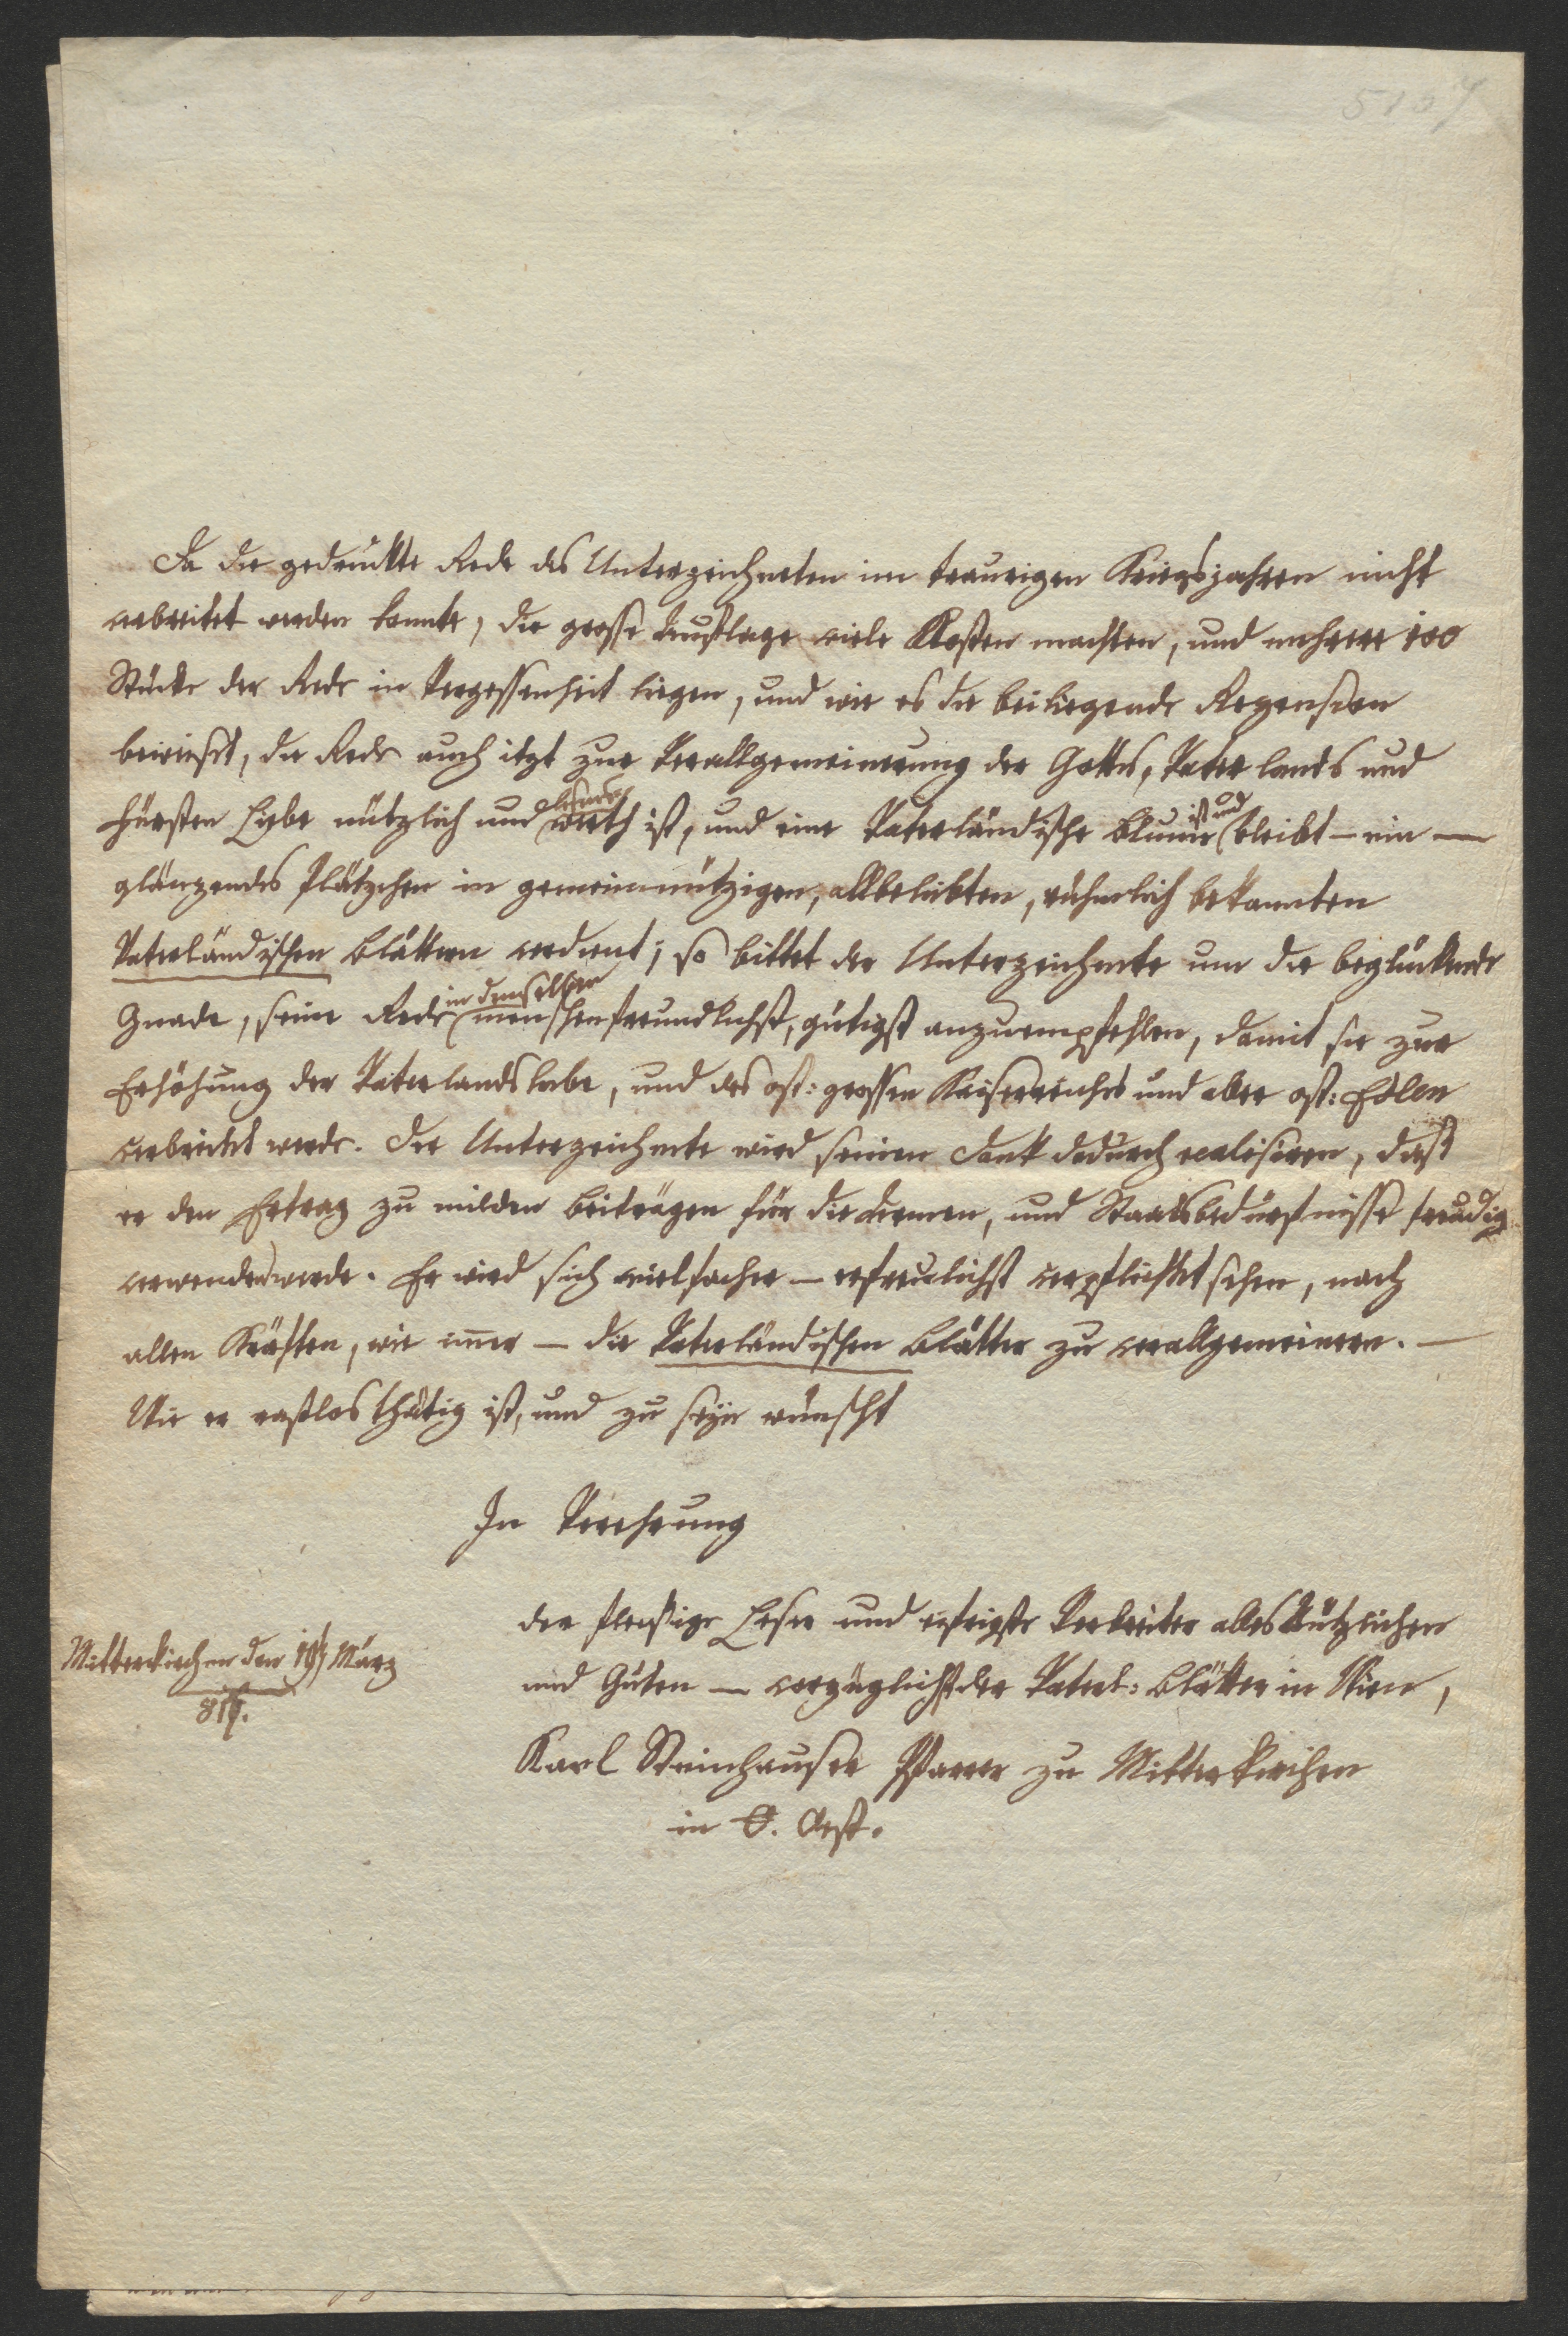 5107
Da die gedruckte Rede des Unterzeichneten im traurigen Kriegsjahren nicht
verbreitet werden konnte, die grosse Auflage viele Kosten machten, und mehrere 100
Stücke der Rede in Vergessenheit liegen, und wie es die beiliegende Rezension
beweiset, die Rede auch itzt zur Verallgemeinerung der Gottes, Vaterlands und
Fürsten Liebe nützlich und lesenswerth ist, und eine Vaterländische Blume ist und bleibt – ein —
glänzendes Plätzchen in gemeinnützigen, allbeliebten, rühmlich bekannten
Vaterländischen Blättern verdient; so bittet der Unterzeichnete um die beglückende
Gnade, seine Rede in denselben menschenfreundlichst, gütigst anzuempfehlen, damit sie zur
Erhöhung der Vaterlandsliebe, und des öst: grossen Kaiserreichs und aller öst: Edlen
verbreitet werde. Der Unterzeichnete wird seinen Dank dadurch realisiren, daß
er den Ertrag zu milden Beiträgen für die Armen, und Staatsbedürfnisse freudig
verwenden werde. Er wird sich vielfacher – erfreulichst verpflichtet sehen, nach
allen Kräften, wie immer – die Vaterländischen Blätter zu verallgemeinern. —
Wie er rastlos thätig ist, und zu seyn wünscht
In Verehrung
der fleißige Leser und eifrigste Verbreiter alles Nützlichen
und Guten — vorzüglichst der Vaterl: Blätter in Wien,
Mitterkirchen den März
Karl Steinhauser Pfarrer zu Mitterkirchen
in O. Oest.